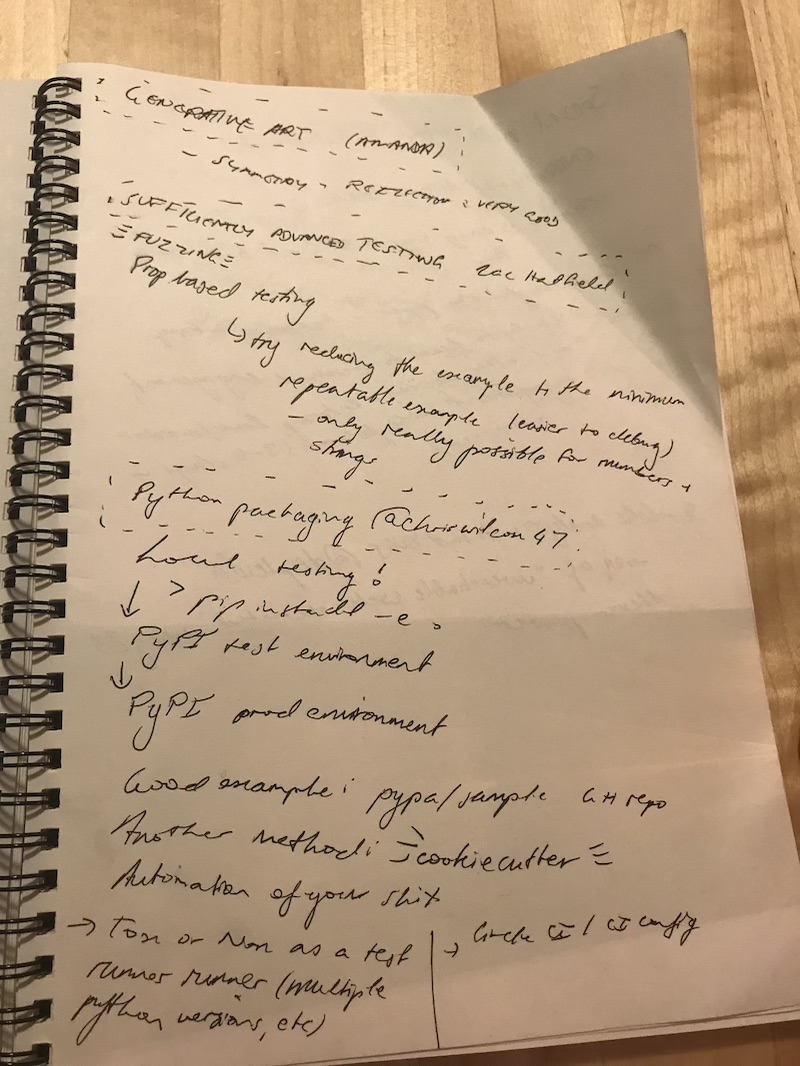 GENERATIVE ART (AMANDA)
- SYMMETRY + REFLECTION : VERY GOOD
SUFFICIENTLY ADVANCED TESTING Zac Hatfield
FUZZING
Prop based testing
↳ try reducing the example to the minimum
repeatable example (easier to debug)
- only really possible for numbers +
strings
Python packaging @chriswilcox47
Local testing!
↓ > pip install -e .
PyPI test environment
↓
PyPI prod environment
Good example: pypa/sample GH repo
Another method: cookiecutter
Automation of your shit
→ Tox or Nox as a test
runner runner (multiple
python versions, etc)
→ Circle CI / CI config